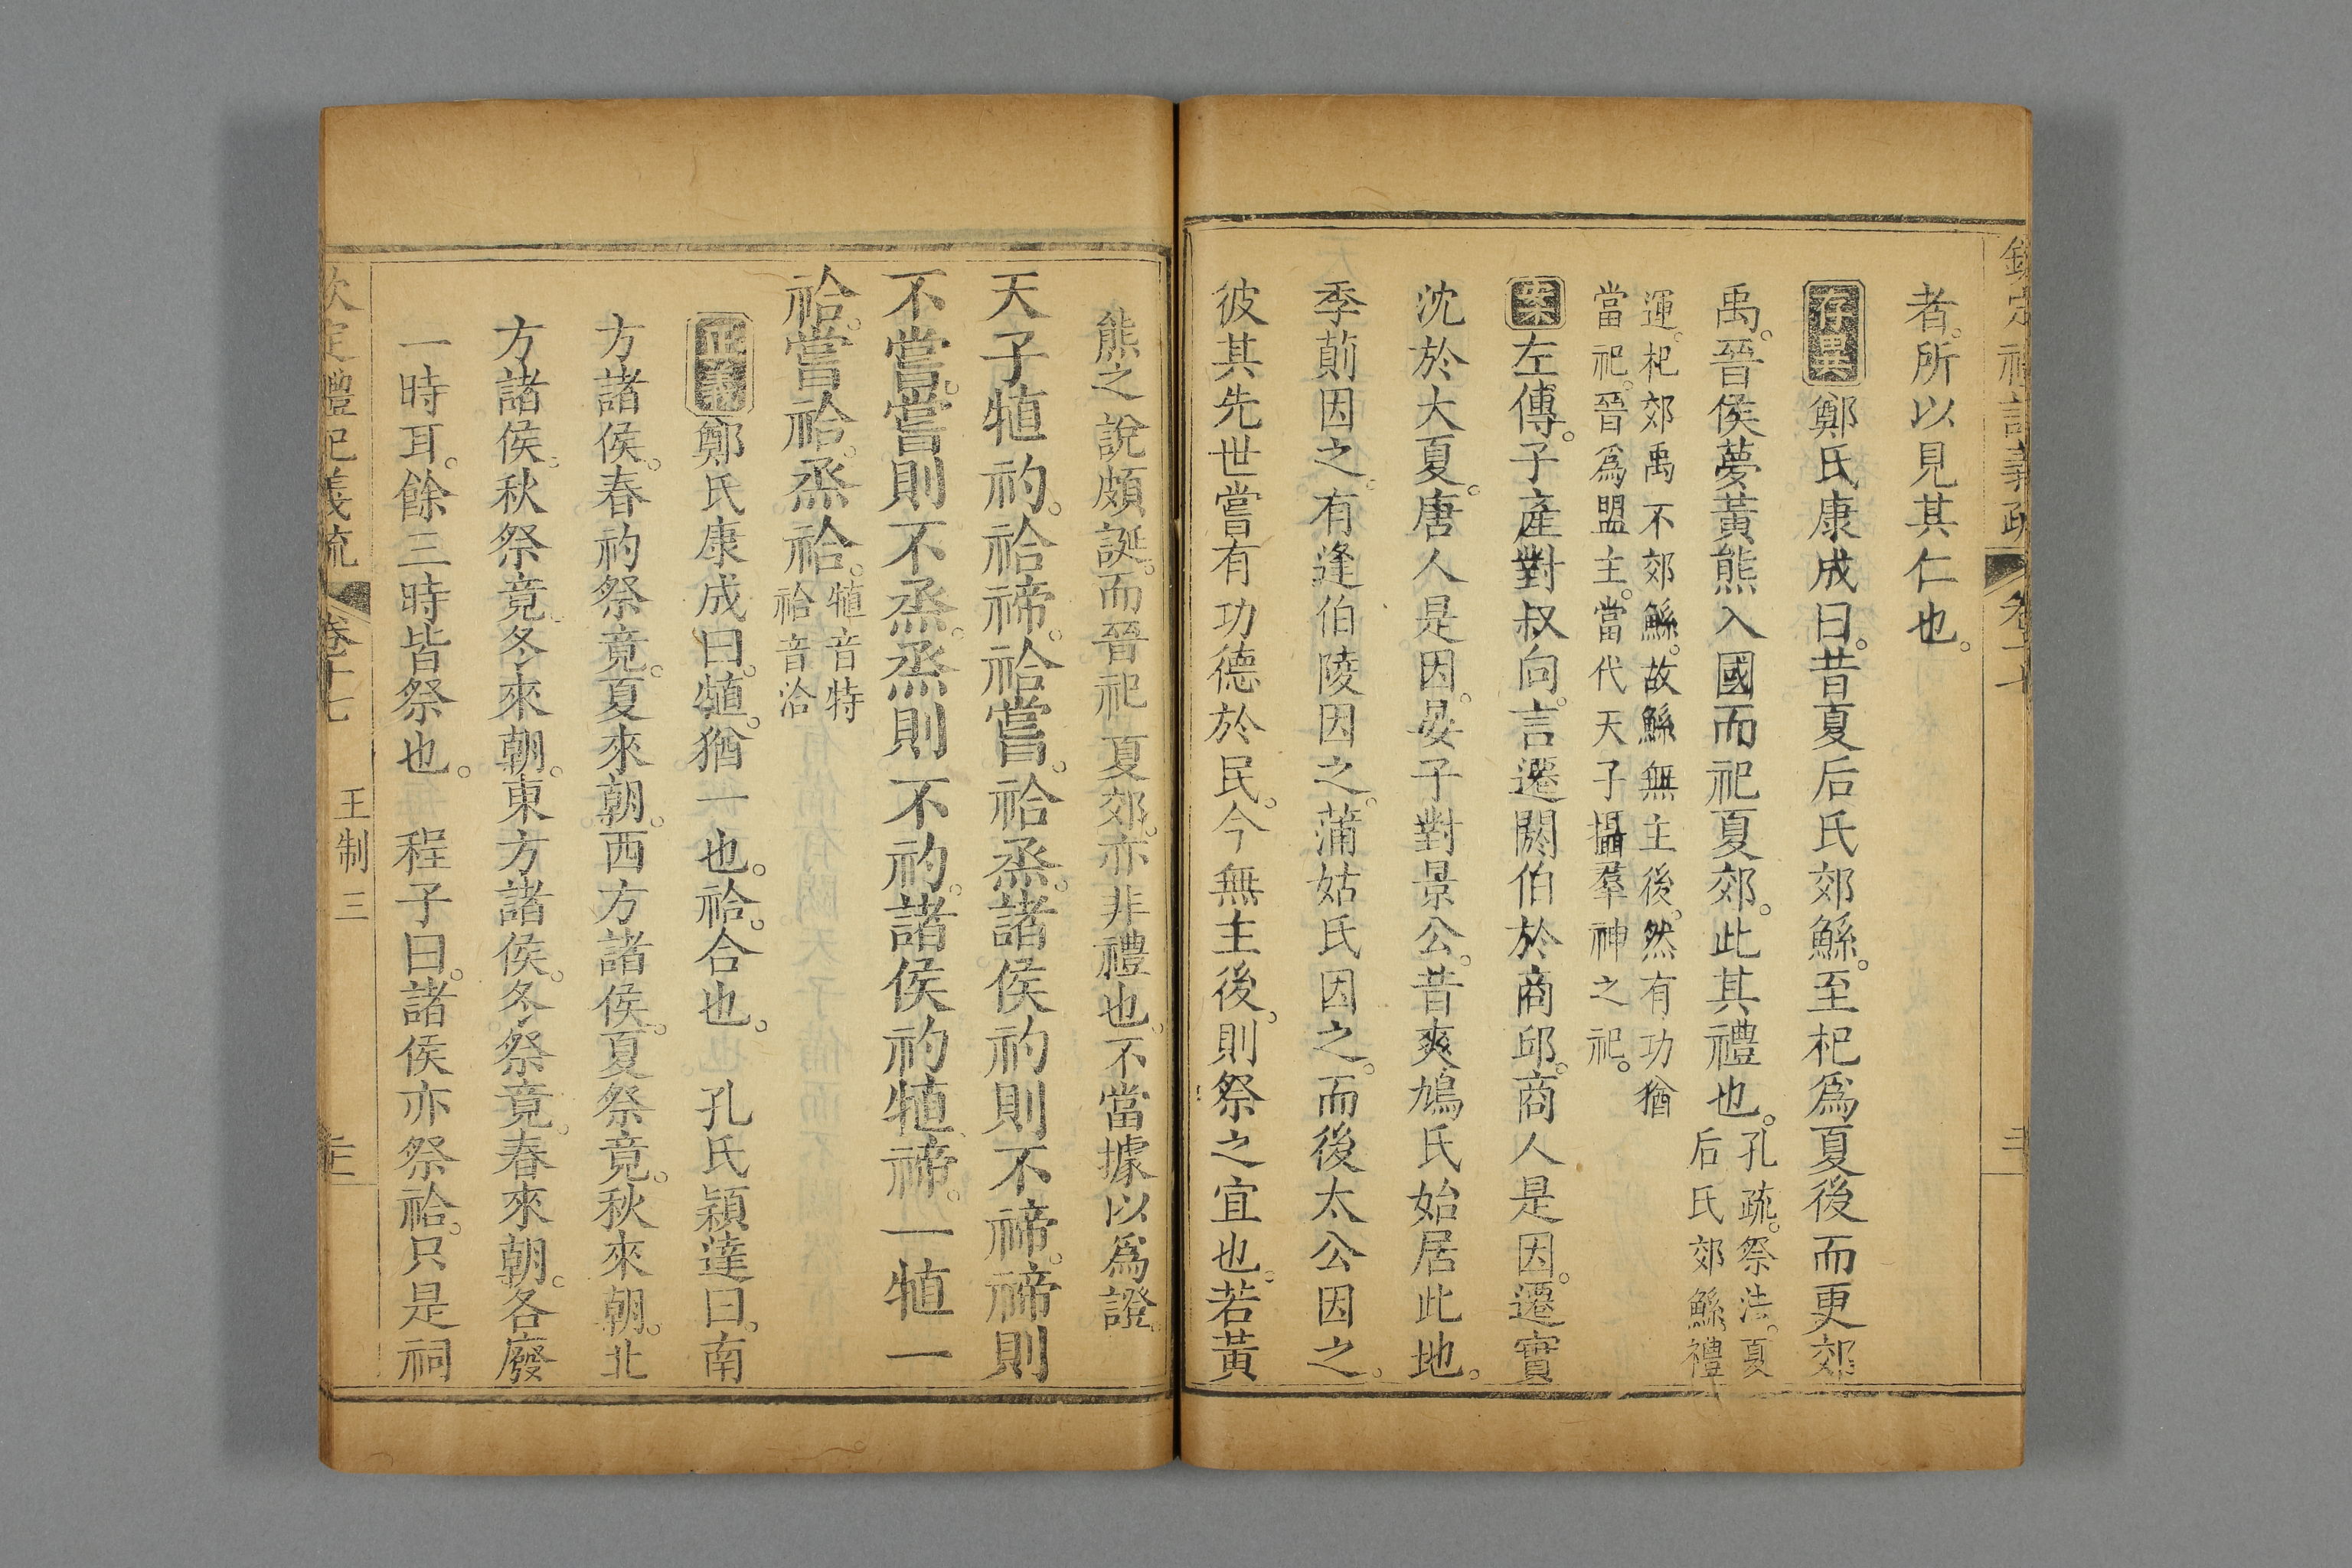 欽定禮記義疏
卷十七
者。所以見其仁也。
存異鄭氏康成曰。昔夏后氏郊鯀。至杞爲夏後而更郊
禹。晉侯夢黃熊入國而祀夏郊。此其禮也。孔疏。祭法。夏
后氏郊鯀。禮
運。杞郊禹不郊鯀。故鯀無主後。然有功猶
當祀。晉爲盟主。當代天子攝羣神之祀。
案左傳。子產對叔向。言遷閼伯於商邱。商人是因。遷實
沈於大夏。唐人是因。晏子對景公。昔爽鳩氏始居此地。
季萴因之。有逢伯陵因之。蒲姑氏因之。而後太公因之。
彼其先世嘗有功德於民。今無主後。則祭之宜也。若黃
熊之說頗誕。而晉祀夏郊。亦非禮也。不當據以爲證。
天子犆礿。祫禘。祫嘗。祫烝。諸侯礿則不禘。禘則
不嘗。嘗則不烝。烝則不礿。諸侯礿犆。禘。一犆一
祫。嘗祫。烝祫。犆音特
祫音洽
正義鄭氏康成曰。犆。猶一也。祫。合也。 孔氏穎達曰。南
方諸侯。春礿祭竟。夏來朝。西方諸侯。夏祭竟。秋來朝。北
方諸侯。秋祭竟。冬來朝。東方諸侯。冬祭竟。春來朝。各廢
一時耳。餘三時皆祭也。 程子曰。諸侯亦祭祫。只是祠
欽定禮記義疏
卷十七
王制三